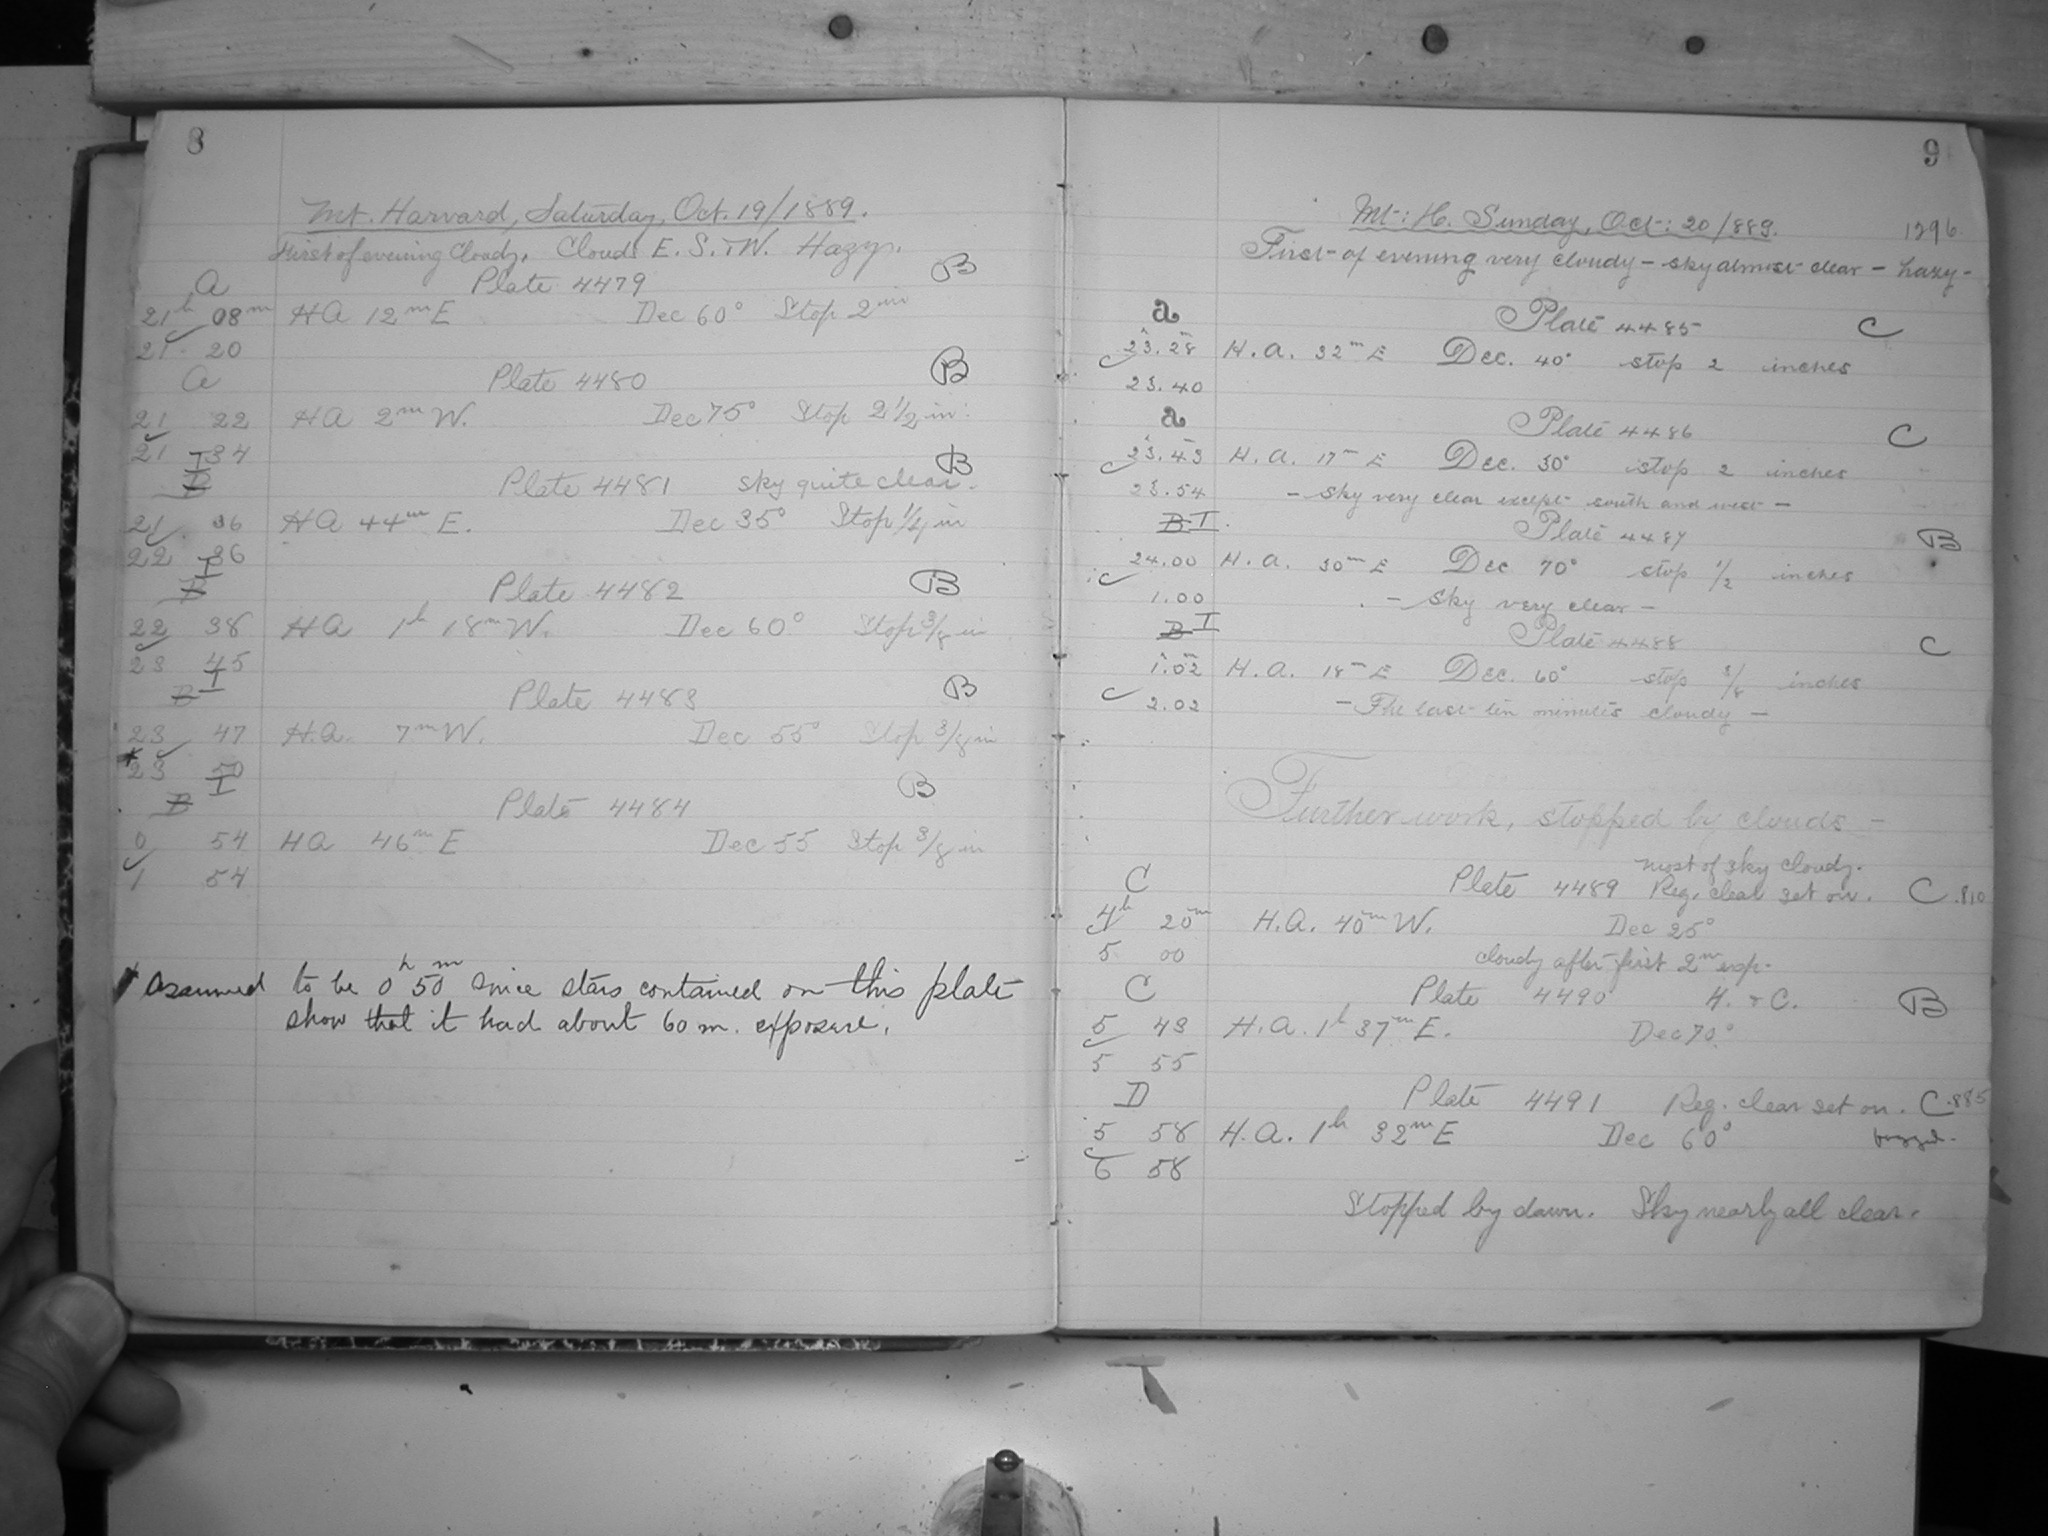 8
Mt. Harvard, Saturday, Oct. 19/1889.
First of evening Cloudy. Clouds E. S. & W. Hazy.
A Plate 4479 B
21h 08m HA 12m E Dec 60° Stop 2 in
21 20
A Plate 4480 B
21 22 HA 2m W. Dec 75° Stop 2 1/2 in.
21 34
B I Plate 4481 sky quite clear. B
21 36 HA 44m E. Dec 35° Stop 1/2 in
22 36
B I Plate 4482 B
22 38 HA 1h 18m W. Dec 60° Stop 3/8 in
23 45
B I Plate 4483 B
23 47 H.A. 7m W. Dec 55° Stop 3/8 in
* 23 50
B I Plate 4484 B
0 54 HA 46m E Dec 55 Stop 3/8 in
1 54
* assumed to be 0h 50m since stars contained on this plate
show that it had about 60 m. exposure.
9
Mt: H. Sunday, Oct: 20/889. 1296
First of evening very cloudy - sky almost clear - hazy -
a Plate 4485 C
23h.28m H.A. 32m E Dec. 40° stop 2 inches
23.40
a Plate 4486 C
23h.43m H.A. 17m E Dec. 30° stop 2 inches
23.54 - sky very clear except south and west -
B I. Plate 4487 B
24.00 H.A. 30m E Dec 70° stop 1/2 inches
1.00 - Sky very clear -
B I Plate 4488 C
1h.02m H.A. 18m E Dec. 60° stop 3/8 inches
2.02 - The last ten minutes cloudy -
Further work, stopped by clouds -
most of sky cloudy.
C Plate 4489 Reg. clear set on. C .810
4h 20m H.A. 40m W. Dec 25°
5 00 cloudy after first 2m exp.
C Plate 4490 H. & C. B
5 43 H.A. 1h 37m E. Dec 70°
5 55
D Plate 4491 Reg. clear set on. C .885
5 58 H.A. 1h 32m E Dec 60° fogged.
6 58
Stopped by dawn. Sky nearly all clear.